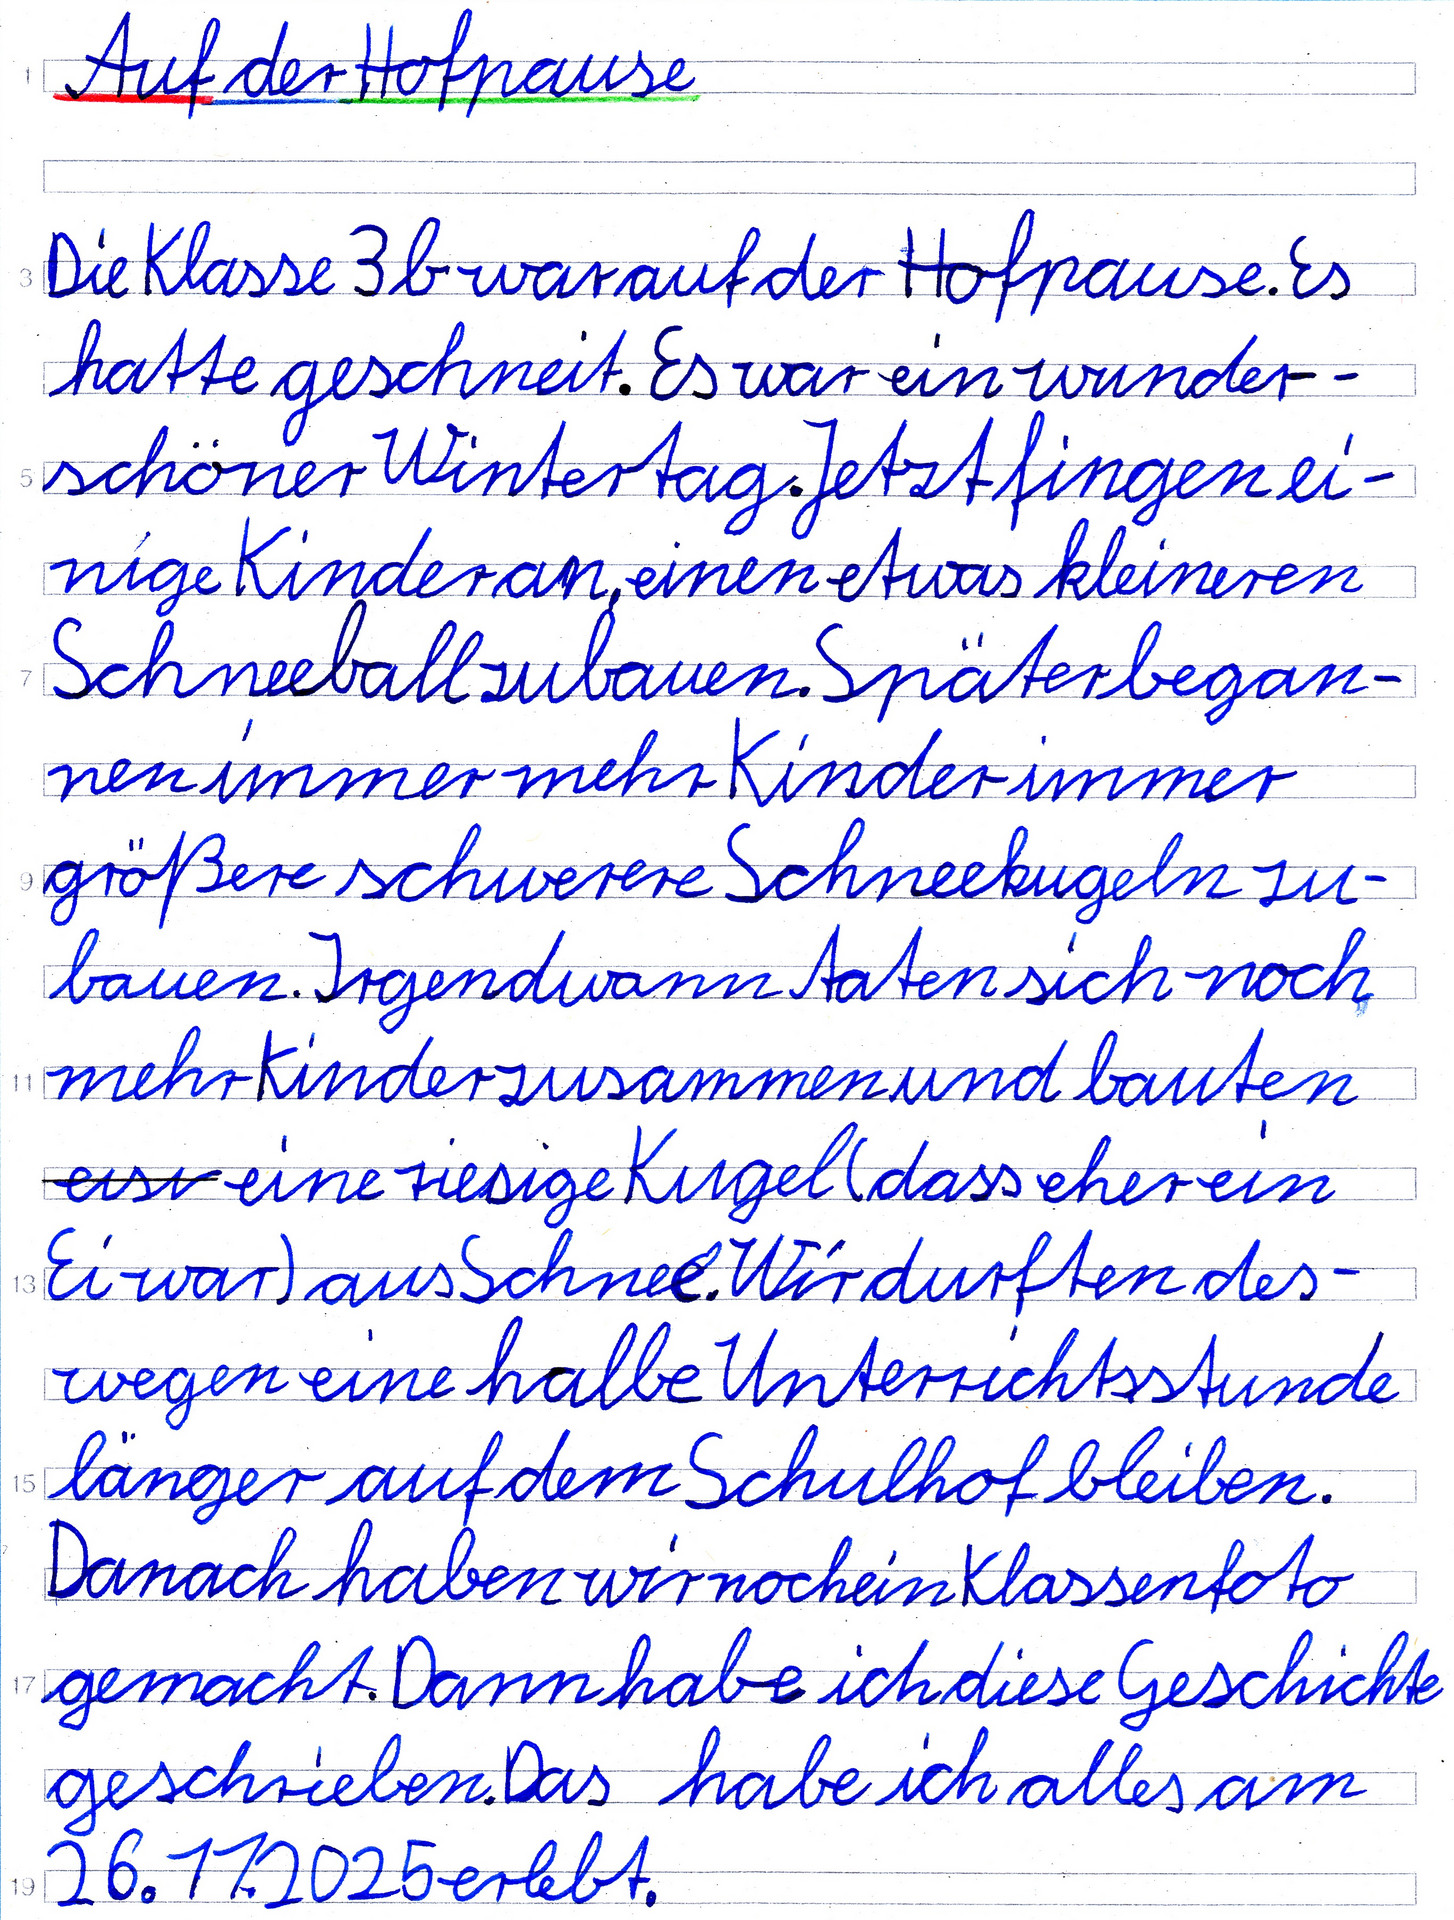 1 Auf der Hofpause
3 Die Klasse 3b war auf der Hofpause. Es
hatte geschneit. Es war ein wunder-
5 schöner Wintertag. Jetzt fingen ei-
nige Kinder an, einen etwas kleineren
7 Schneeball zu bauen. Später began-
nen immer mehr Kinder immer
9 größere schwerere Schneekugeln zu-
bauen. Irgendwann taten sich noch
11 mehr Kinder zusammen und bauten
eine riesige Kugel (dass eher ein
13 Ei war) aus Schnee. Wir durften des-
wegen eine halbe Unterrichtsstunde
15 länger auf dem Schulhof bleiben.
Danach haben wir noch ein Klassenfoto
17 gemacht. Dann habe ich diese Geschichte
geschrieben. Das habe ich alles am
19 26.11.2025 erlebt.